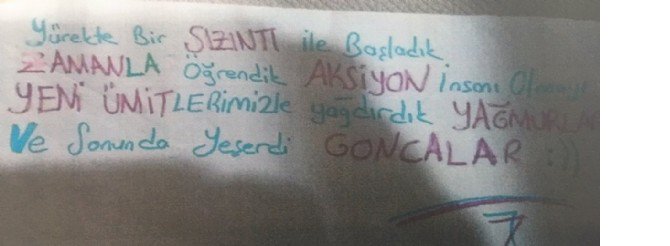 Yürekte Bir SIZINTI ile Başladık
ZAMANLA Öğrendik AKSİYON İnsanı Olmayı
YENİ ÜMİTLERimizle yağdırdık YAĞMURLAR
Ve Sonunda Yeşerdi GONCALAR :))